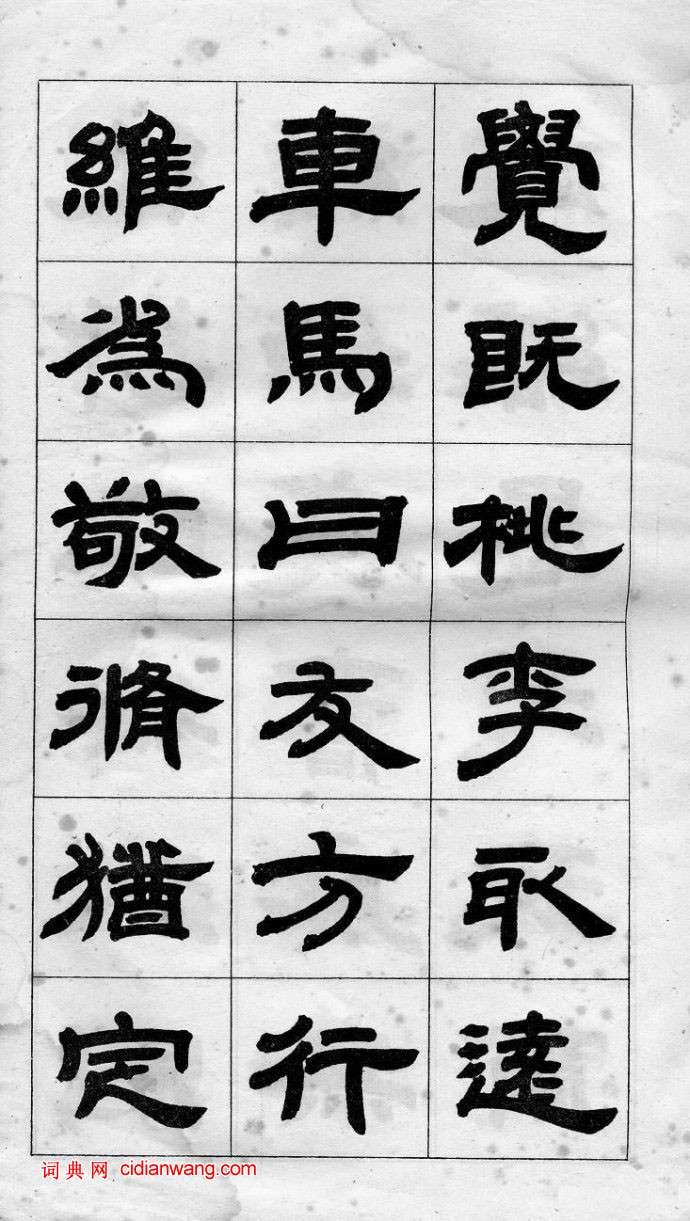 覺既桃李取逵
車馬曰友方行
維為敬脩猶定
词典网 cidianwang.com